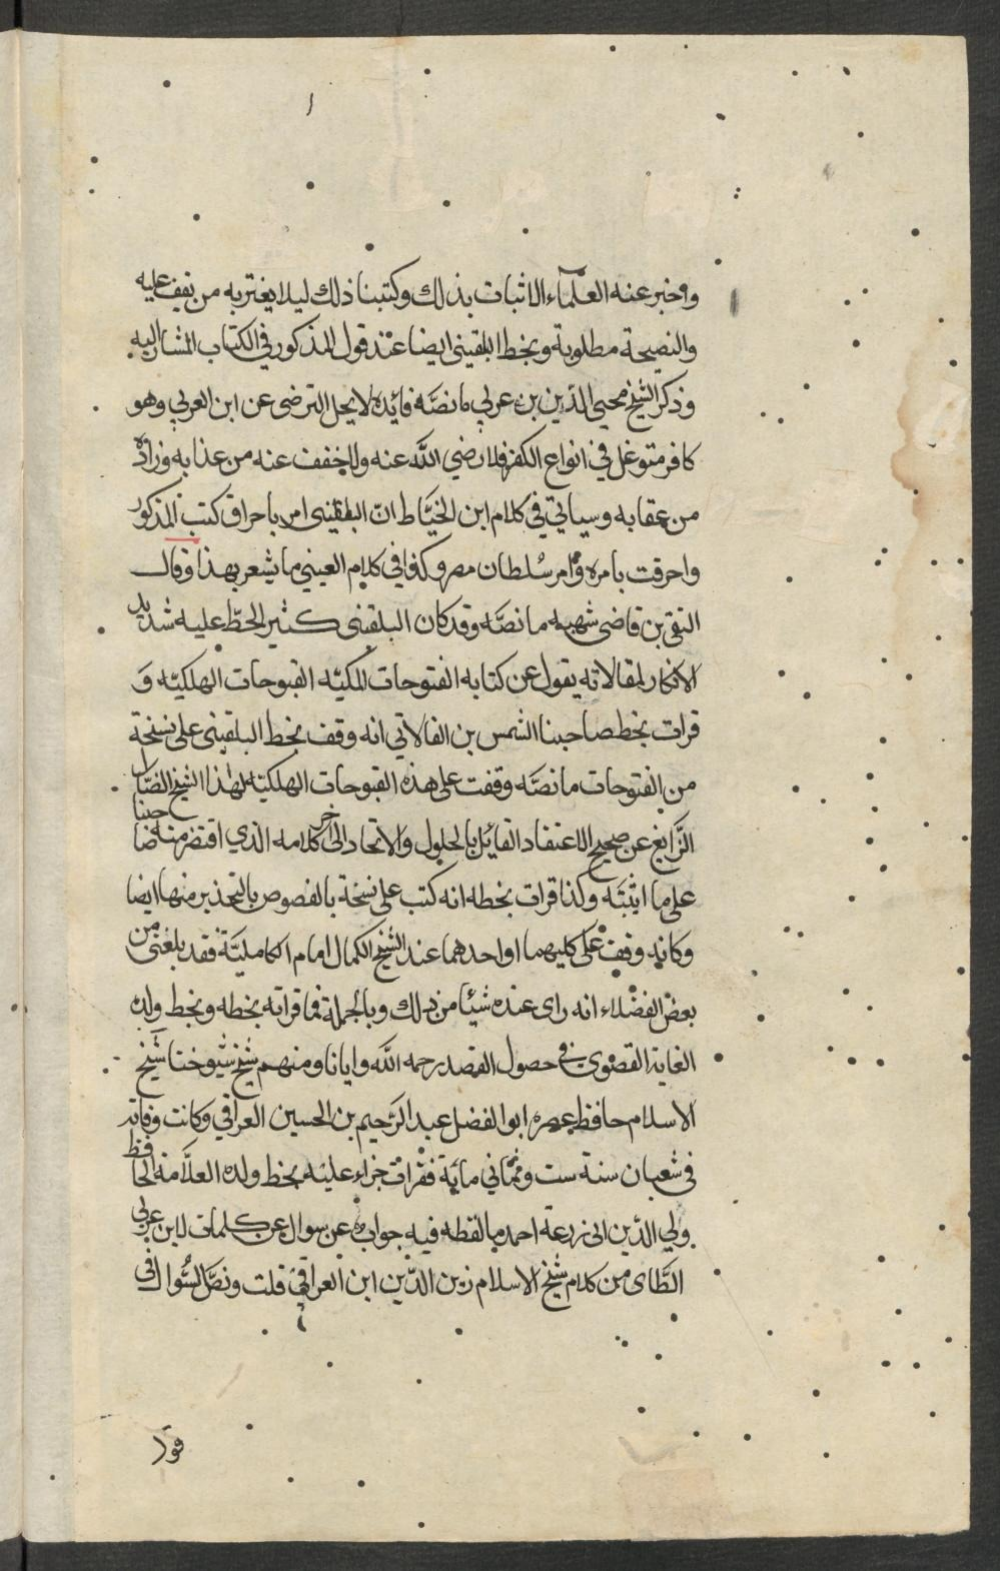 واخبر عنه العلماء الاثبات بذلك وكتبنا ذلك ليلا يغتر به من يقف عليه
والنصيحة مطلوبة وبخط البلقيني ايضا عند قول المذكور في الكتاب المشار اليه
وذكر الشيخ محيي الدين بن عربي ما نصه فائده لا يحل الترضى عن ابن العربي وهو
كافر متوغل في انواع الكفر فلا رضي الله عنه ولا خفف عنه من عذابه وزاده
من عقابه وسياتي في كلام ابن الخياط ان البلقيني امر باحراق كتب المذكور
واحرقت بامره وامر سلطان مصر وكذا في كلام العيني ما يشعر بهذا وقال
التقي بن قاضي شهبه ما نصه وقد كان البلقيني كثير الحط عليه شديد
الانكار لمقالاته يقول عن كتابه الفتوحات المكيه القبوحات الهلكيه و
قرات بخط صاحبنا الشمس بن الفالاتي انه وقف بخط البلقيني على نسخة
من الفتوحات ما نصه وقفت على هذه القبوحات الهلكيه لهذا الشيخ الضال
الزايغ عن صحيح الاعتقاد القايل بالحلول والاتحاد الى اخر كلامه الذي اقتضر منه صاحبنا
على ما اثبته وكذا قرات بخطه انه كتب على نسخة بالفصوص بالتحذير منها ايضا
وكانه وقف على كليهما او احدهما عند الشيخ الكمال امام الكاملية فقد بلغني من
بعض الفضلاء انه راى عنده شيئا من ذلك وبالجملة فما قراته بخطه وبخط ولده
الغاية القصوى في حصول القصد رحمه الله وايانا ومنهم شيخ شيوخنا شيخ
الاسلام حافظ عصره ابو الفضل عبد الرحيم بن الحسين العراقي وكانت وفاته
في شعبان سنة ست وثماني ماية فقرات في جزاء عليه بخط ولده العلامة الحافظ
ولي الدين ابى زرعة احمد ما لفظه فيه جوابه عن سوال عن كلمات لابن عربي
الطاى من كلام شيخ الاسلام زين الدين ابن العراقي قلت ونص السوال في